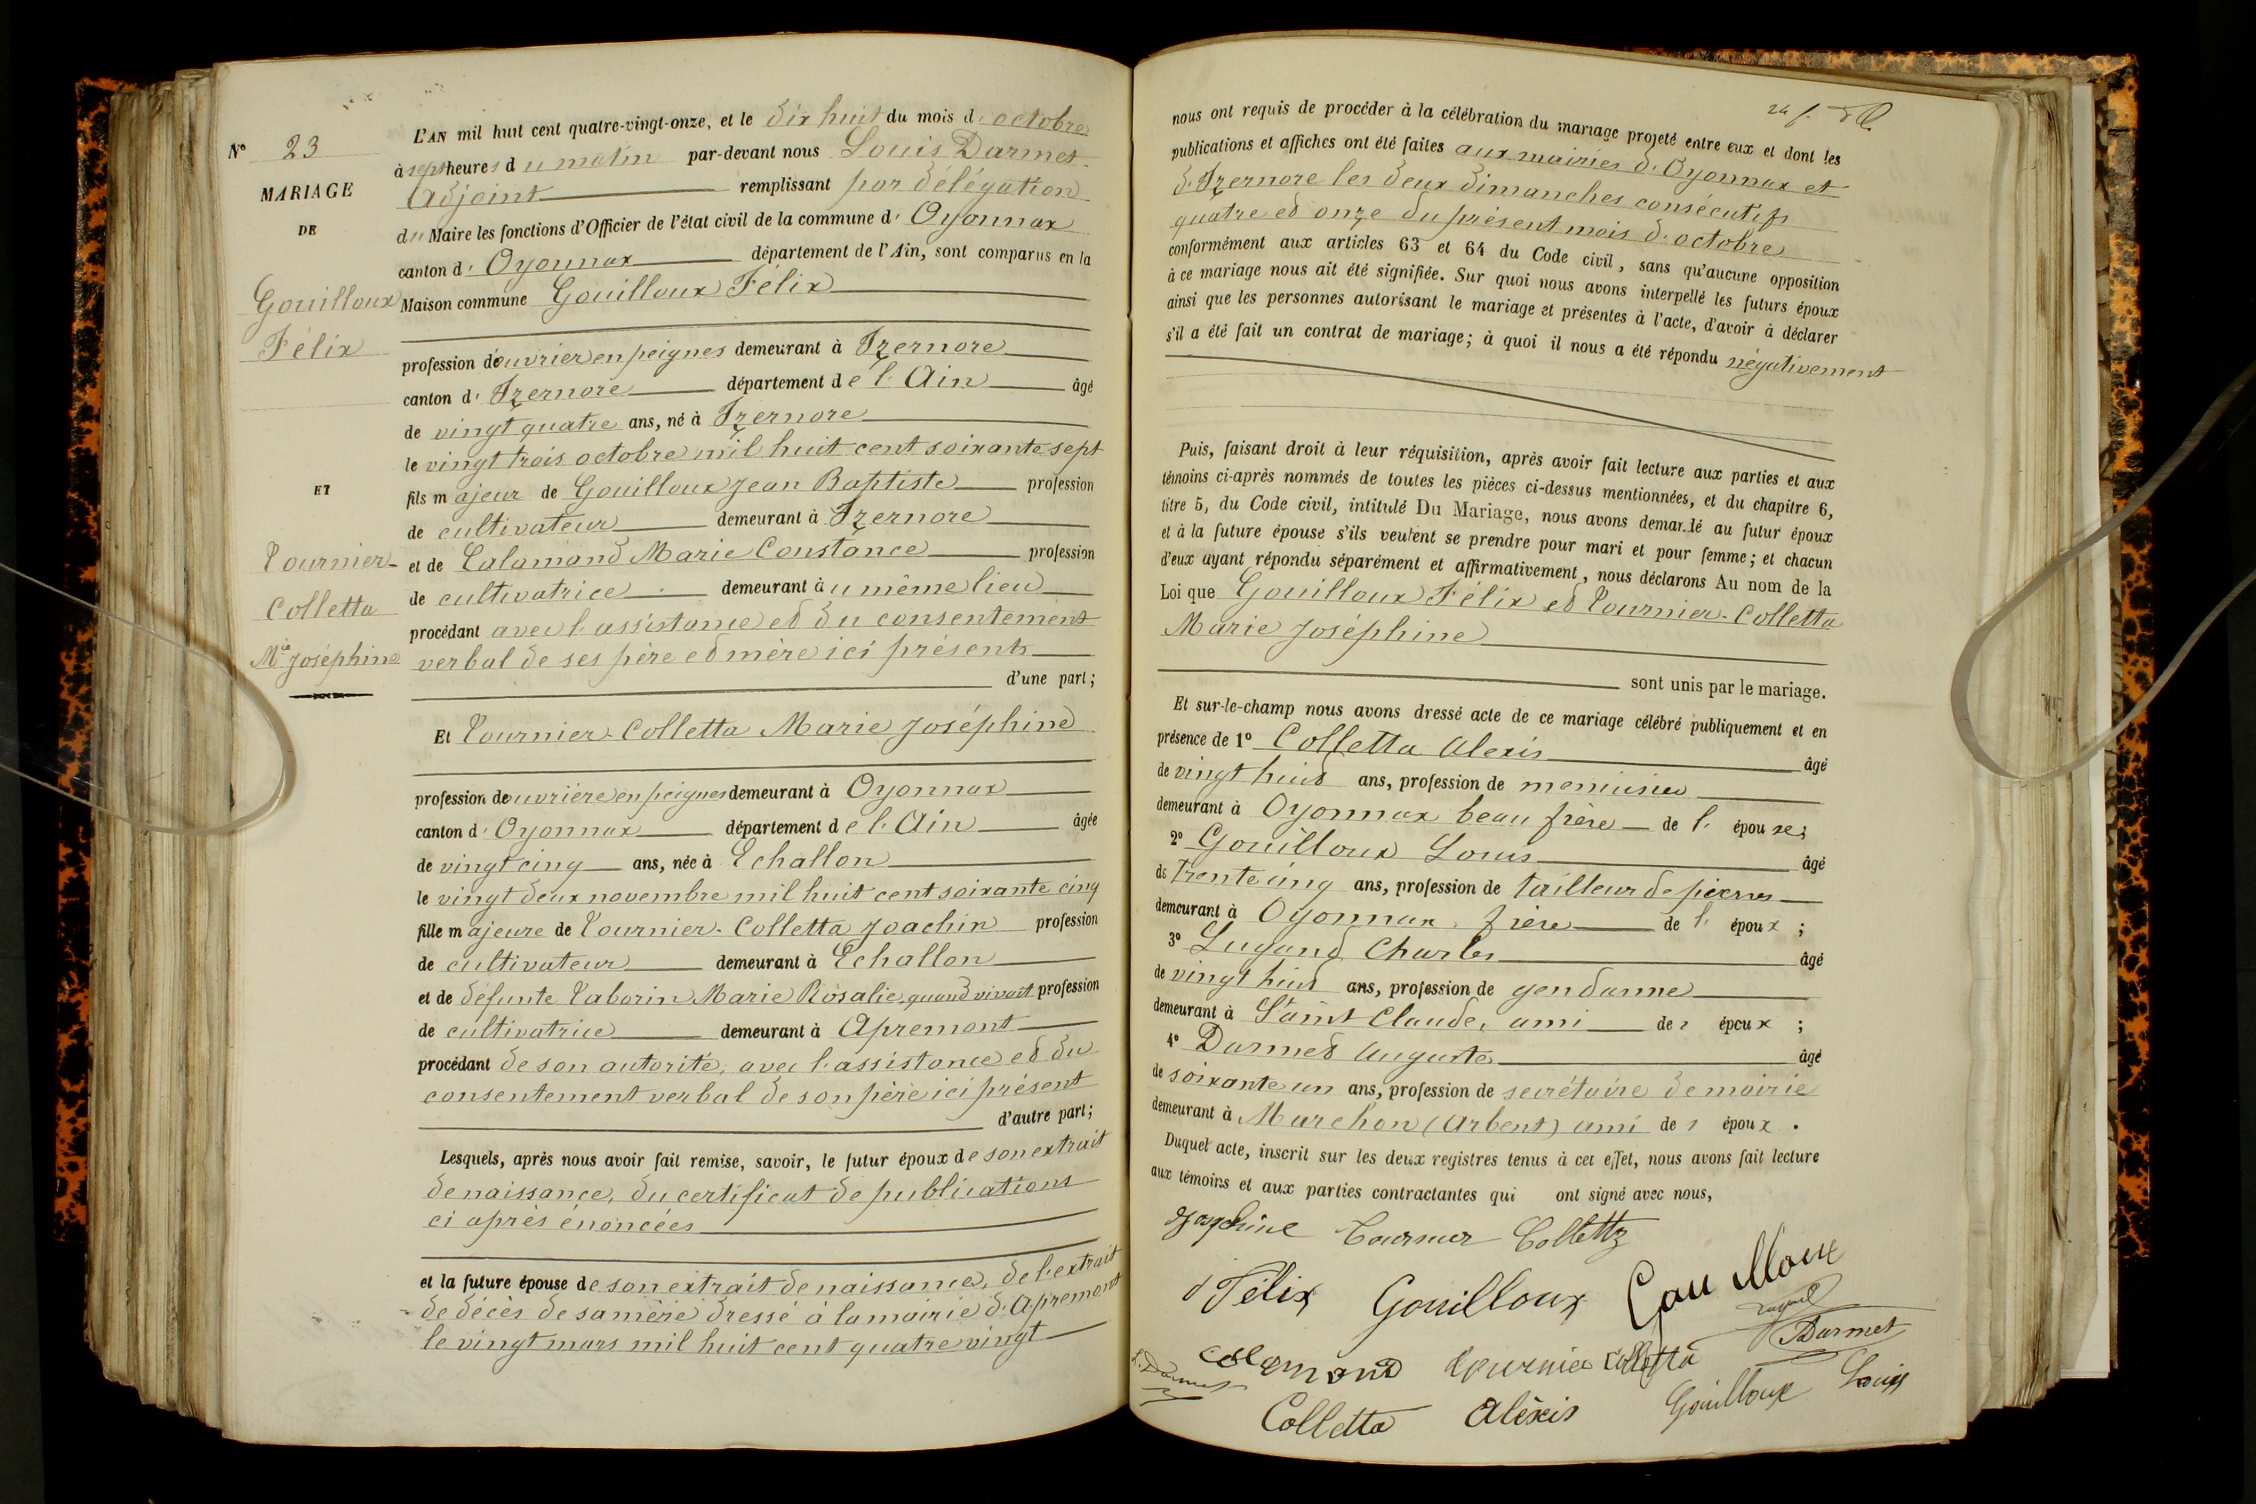 N° 23
MARIAGE
DE
Gouilloux
Félix
ET
Tournier-
Colletta
Mie Joséphine
L'AN mil huit cent quatre-vingt-onze, et le dix huit du mois d'octobre
à sept heures du matin par-devant nous Louis Darmet
Adjoint remplissant par délégation
du Maire les fonctions d'Officier de l'état civil de la commune d'Oyonnax
canton d'Oyonnax département de l'Ain, sont comparus en la
Maison commune Gouilloux Félix
profession d'ouvrier en peignes demeurant à Izernore
canton d'Izernore département de l'Ain âgé
de vingt quatre ans, né à Izernore
le vingt trois octobre mil huit cent soixante sept
fils majeur de Gouilloux Jean Baptiste profession
de cultivateur demeurant à Izernore
et de Calamand Marie Constance profession
de cultivatrice demeurant au même lieu
procédant avec l'assistance et du consentement
verbal de ses père et mère ici présents
d'une part;
Et Tournier-Colletta Marie Joséphine
profession de ouvrière en peignes demeurant à Oyonnax
canton d'Oyonnax département de l'Ain âgée
de vingt cinq ans, née à Echallon
le vingt deux novembre mil huit cent soixante cinq
fille majeure de Tournier-Colletta Joachin profession
de cultivateur demeurant à Echallon
et de défunte Taborin Marie Rosalie, quand vivait profession
de cultivatrice demeurant à Apremont
procédant de son autorité, avec l'assistance et du
consentement verbal de son père ici présent
d'autre part;
Lesquels, après nous avoir fait remise, savoir, le futur époux de son extrait
de naissance, du certificat de publications
ci après énoncées
et la future épouse de son extrait de naissance, de l'extrait
de décès de sa mère dressé à la mairie d'Apremont
le vingt mars mil huit cent quatre vingt
nous ont requis de procéder à la célébration du mariage projeté entre eux et dont les
publications et affiches ont été faites aux mairies d'Oyonnax et
d'Izernore les deux dimanches consécutifs
quatre et onze du présent mois d'octobre
conformément aux articles 63 et 64 du Code civil, sans qu'aucune opposition
à ce mariage nous ait été signifiée. Sur quoi nous avons interpellé les futurs époux
ainsi que les personnes autorisant le mariage et présentes à l'acte, d'avoir à déclarer
s'il a été fait un contrat de mariage; à quoi il nous a été répondu négativement
Puis, faisant droit à leur réquisition, après avoir fait lecture aux parties et aux
témoins ci-après nommés de toutes les pièces ci-dessus mentionnées, et du chapitre 6,
titre 5, du Code civil, intitulé Du Mariage, nous avons demandé au futur époux
et à la future épouse s'ils veulent se prendre pour mari et pour femme; et chacun
d'eux ayant répondu séparément et affirmativement, nous déclarons Au nom de la
Loi que Gouilloux Félix et Tournier-Colletta
Marie Joséphine
sont unis par le mariage.
Et sur-le-champ nous avons dressé acte de ce mariage célébré publiquement et en
présence de 1° Colletta Alexis âgé
de vingt huit ans, profession de menuisier
demeurant à Oyonnax beau frère de l'épouse;
2° Gouilloux Louis âgé
de trente cinq ans, profession de tailleur de pierres
demeurant à Oyonnax, frère de l'époux;
3° Lugand Charles âgé
de vingt huit ans, profession de gendarme
demeurant à Saint Claude, ami des époux;
4° Darmet Auguste âgé
de soixante un ans, profession de secrétaire de mairie
demeurant à Marchon (Arbent) ami des époux.
Duquel acte, inscrit sur les deux registres tenus à cet effet, nous avons fait lecture
aux témoins et aux parties contractantes qui ont signé avec nous,
Josephine Tournier Colletta
Félix Gouilloux Gouilloux
Lugand
Darmet
L. Darmet Calamand Tournier Colletta
Colletta Alexis Gouilloux Louis